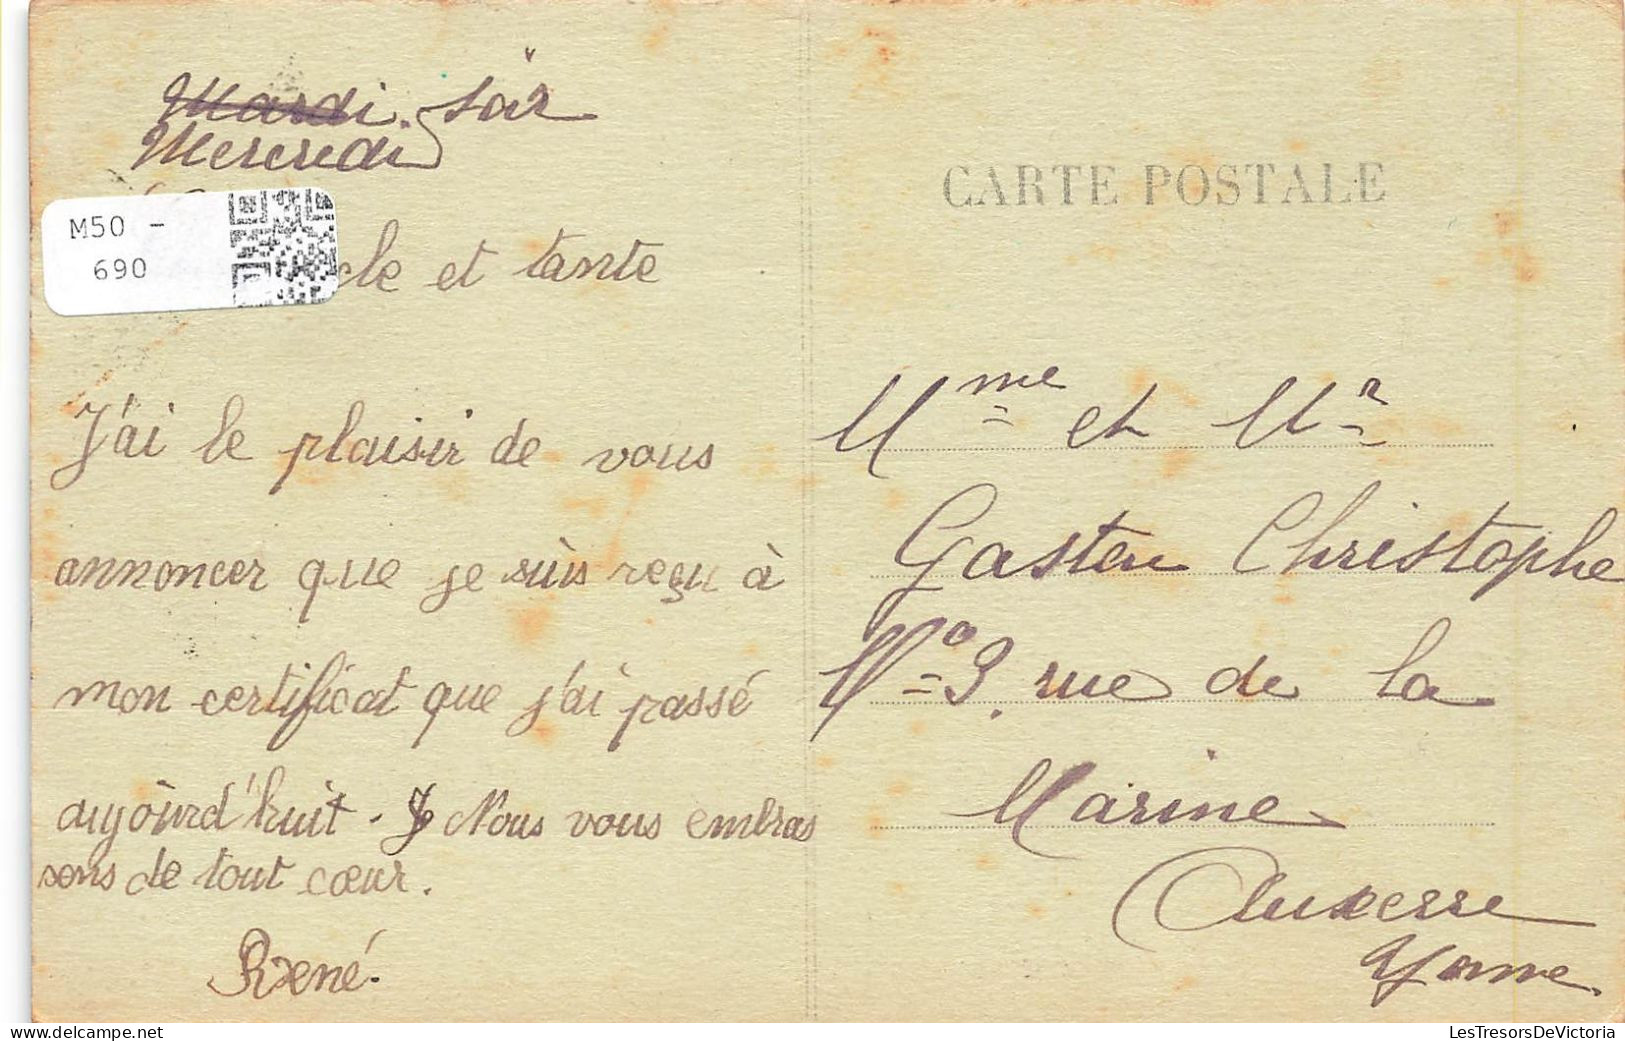 Mardi soir
Mercredi
M50 -
690
cle et tante
J'ai le plaisir de vous
annoncer que je suis reçu à
mon certificat que j'ai passé
aujourd'huit. Je Nous vous embras
sons de tout cœur.
René.
CARTE POSTALE
Mme et Mr
Gaston Christophe
No 9. rue de la
Marine
Auxerre
Yonne.
LesTresorsDeVictoria.com